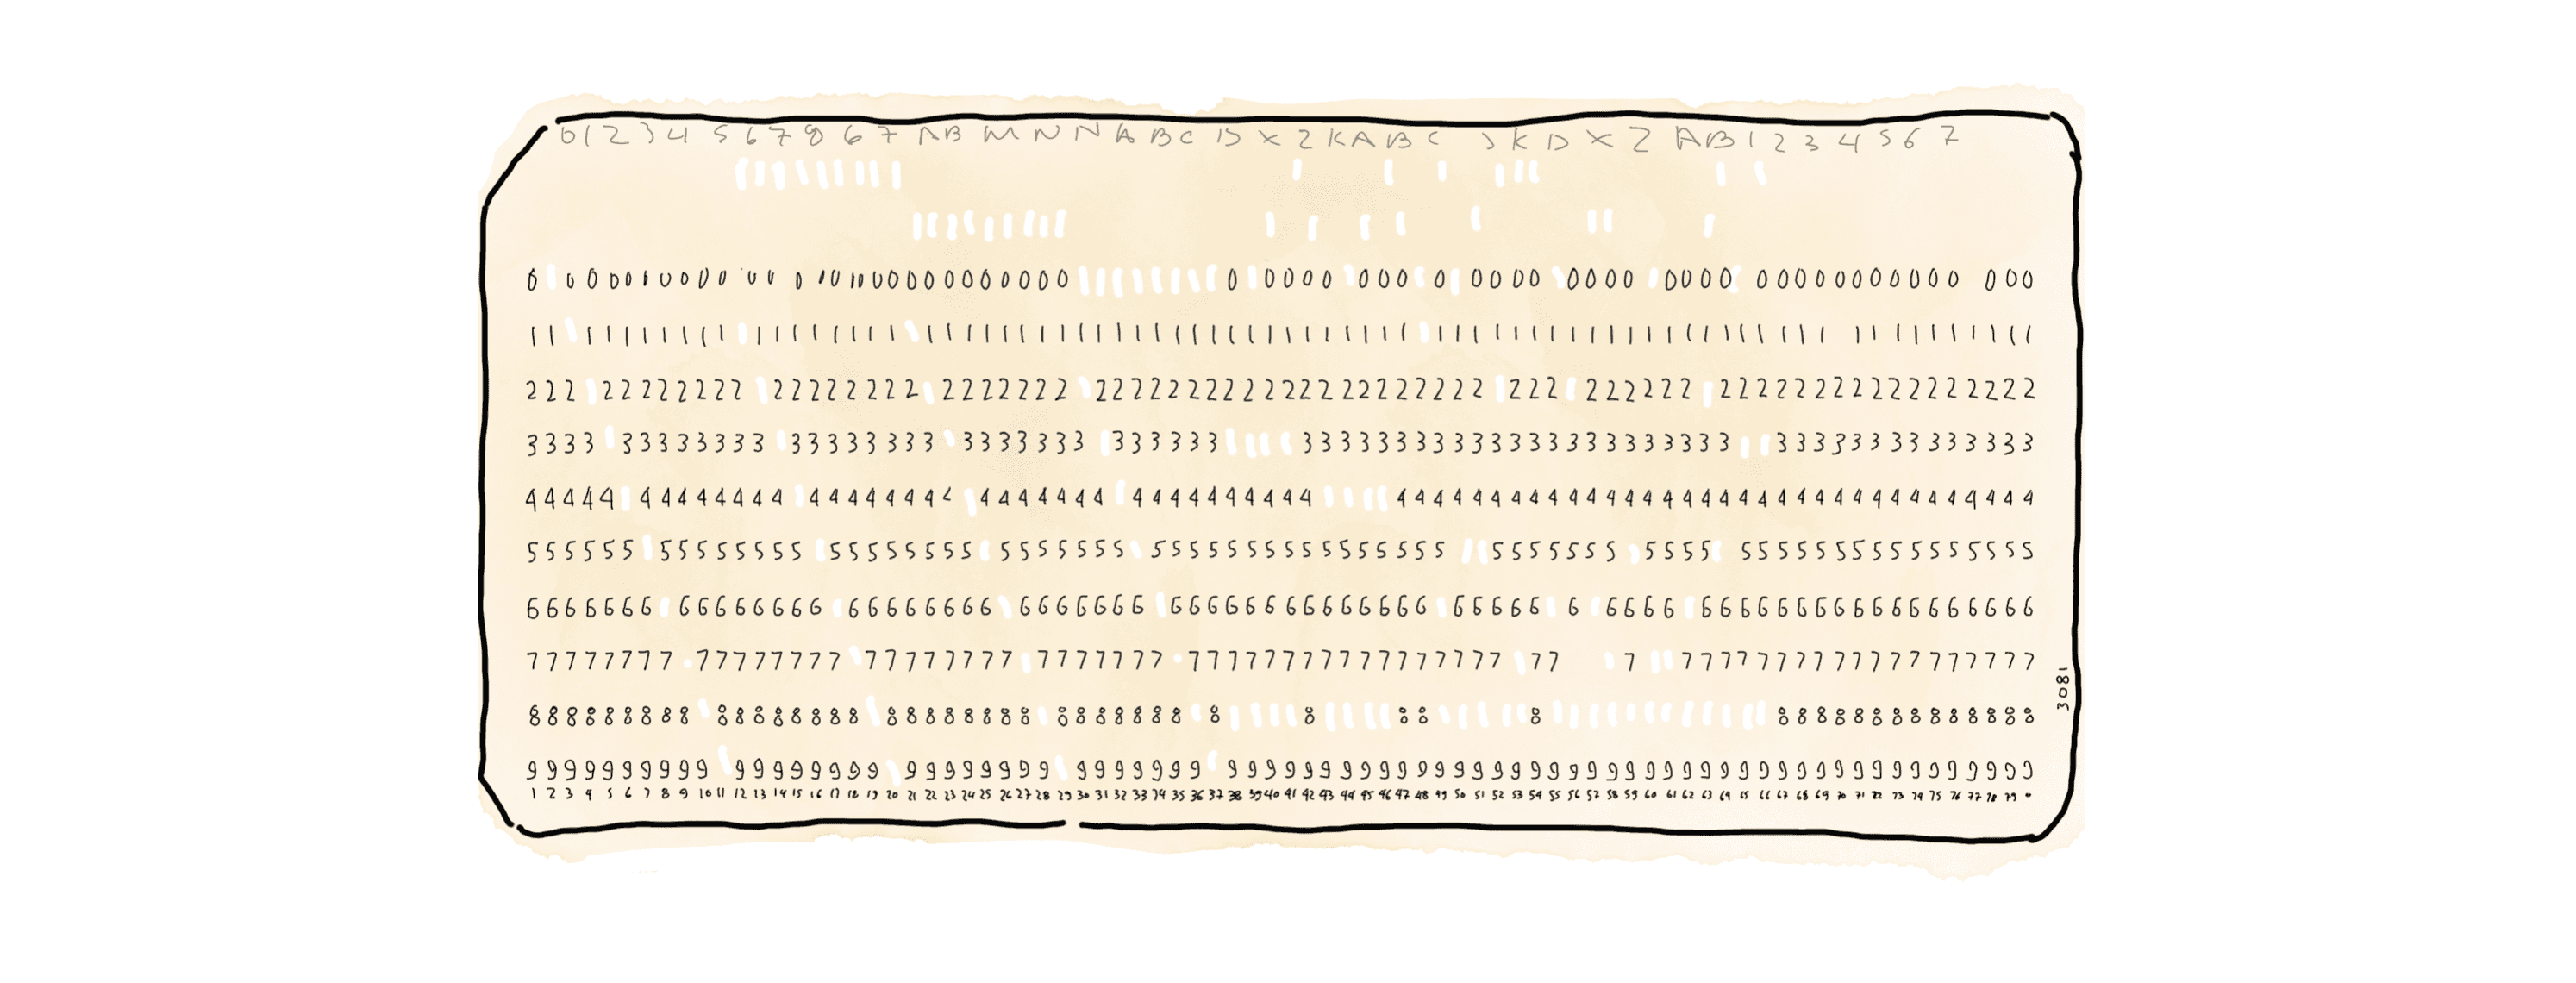 0 1 2 3 4 5 6 7 8 6 7 A B M N N A B C D X Z K A B C J K D X Z A B 1 2 3 4 5 6 7
0 0 0 0 0 0 0 0 0 0 0 0 0 0 0 0 0 0 0 0 0 0 0 0 0 0 0 0 0 0 0 0 0 0 0 0 0 0 0 0 0 0 0 0 0 0 0 0 0 0 0 0 0 0 0 0 0 0 0 0 0
1 1 1 1 1 1 1 1 1 1 1 1 1 1 1 1 1 1 1 1 1 1 1 1 1 1 1 1 1 1 1 1 1 1 1 1 1 1 1 1 1 1 1 1 1 1 1 1 1 1 1 1 1 1 1 1 1 1 1 1 1 1 1 1 1 1 1 1 1 1 1 1 1 1 1
2 2 2 2 2 2 2 2 2 2 2 2 2 2 2 2 2 2 2 2 2 2 2 2 2 2 2 2 2 2 2 2 2 2 2 2 2 2 2 2 2 2 2 2 2 2 2 2 2 2 2 2 2 2 2 2 2 2 2 2 2 2 2 2 2 2 2 2 2 2 2 2 2
3 3 3 3 3 3 3 3 3 3 3 3 3 3 3 3 3 3 3 3 3 3 3 3 3 3 3 3 3 3 3 3 3 3 3 3 3 3 3 3 3 3 3 3 3 3 3 3 3 3 3 3 3 3 3 3 3 3 3 3 3 3 3 3 3 3 3 3 3 3
4 4 4 4 4 4 4 4 4 4 4 4 4 4 4 4 4 4 4 4 4 4 4 4 4 4 4 4 4 4 4 4 4 4 4 4 4 4 4 4 4 4 4 4 4 4 4 4 4 4 4 4 4 4 4 4 4 4 4 4 4 4 4 4 4 4 4 4 4 4 4 4
5 5 5 5 5 5 5 5 5 5 5 5 5 5 5 5 5 5 5 5 5 5 5 5 5 5 5 5 5 5 5 5 5 5 5 5 5 5 5 5 5 5 5 5 5 5 5 5 5 5 5 5 5 5 5 5 5 5 5 5 5 5 5 5 5 5 5 5 5 5 5 5
6 6 6 6 6 6 6 6 6 6 6 6 6 6 6 6 6 6 6 6 6 6 6 6 6 6 6 6 6 6 6 6 6 6 6 6 6 6 6 6 6 6 6 6 6 6 6 6 6 6 6 6 6 6 6 6 6 6 6 6 6 6 6 6 6 6 6 6 6 6 6 6
7 7 7 7 7 7 7 7 7 7 7 7 7 7 7 7 7 7 7 7 7 7 7 7 7 7 7 7 7 7 7 7 7 7 7 7 7 7 7 7 7 7 7 7 7 7 7 7 7 7 7 7 7 7 7 7 7 7 7 7 7 7 7 7 7 7 7 7 7 7
8 8 8 8 8 8 8 8 8 8 8 8 8 8 8 8 8 8 8 8 8 8 8 8 8 8 8 8 8 8 8 8 8 8 8 8 8 8 8 8 8 8 8 8 8 8 8 8 8 8 8
9 9 9 9 9 9 9 9 9 9 9 9 9 9 9 9 9 9 9 9 9 9 9 9 9 9 9 9 9 9 9 9 9 9 9 9 9 9 9 9 9 9 9 9 9 9 9 9 9 9 9 9 9 9 9 9 9 9 9 9 9 9 9 9 9 9 9 9 9 9 9 9 9 9 9
1 2 3 4 5 6 7 8 9 10 11 12 13 14 15 16 17 18 19 20 21 22 23 24 25 26 27 28 29 30 31 32 33 34 35 36 37 38 39 40 41 42 43 44 45 46 47 48 49 50 51 52 53 54 55 56 57 58 59 60 61 62 63 64 65 66 67 68 69 70 71 72 73 74 75 76 77 78 79
3081